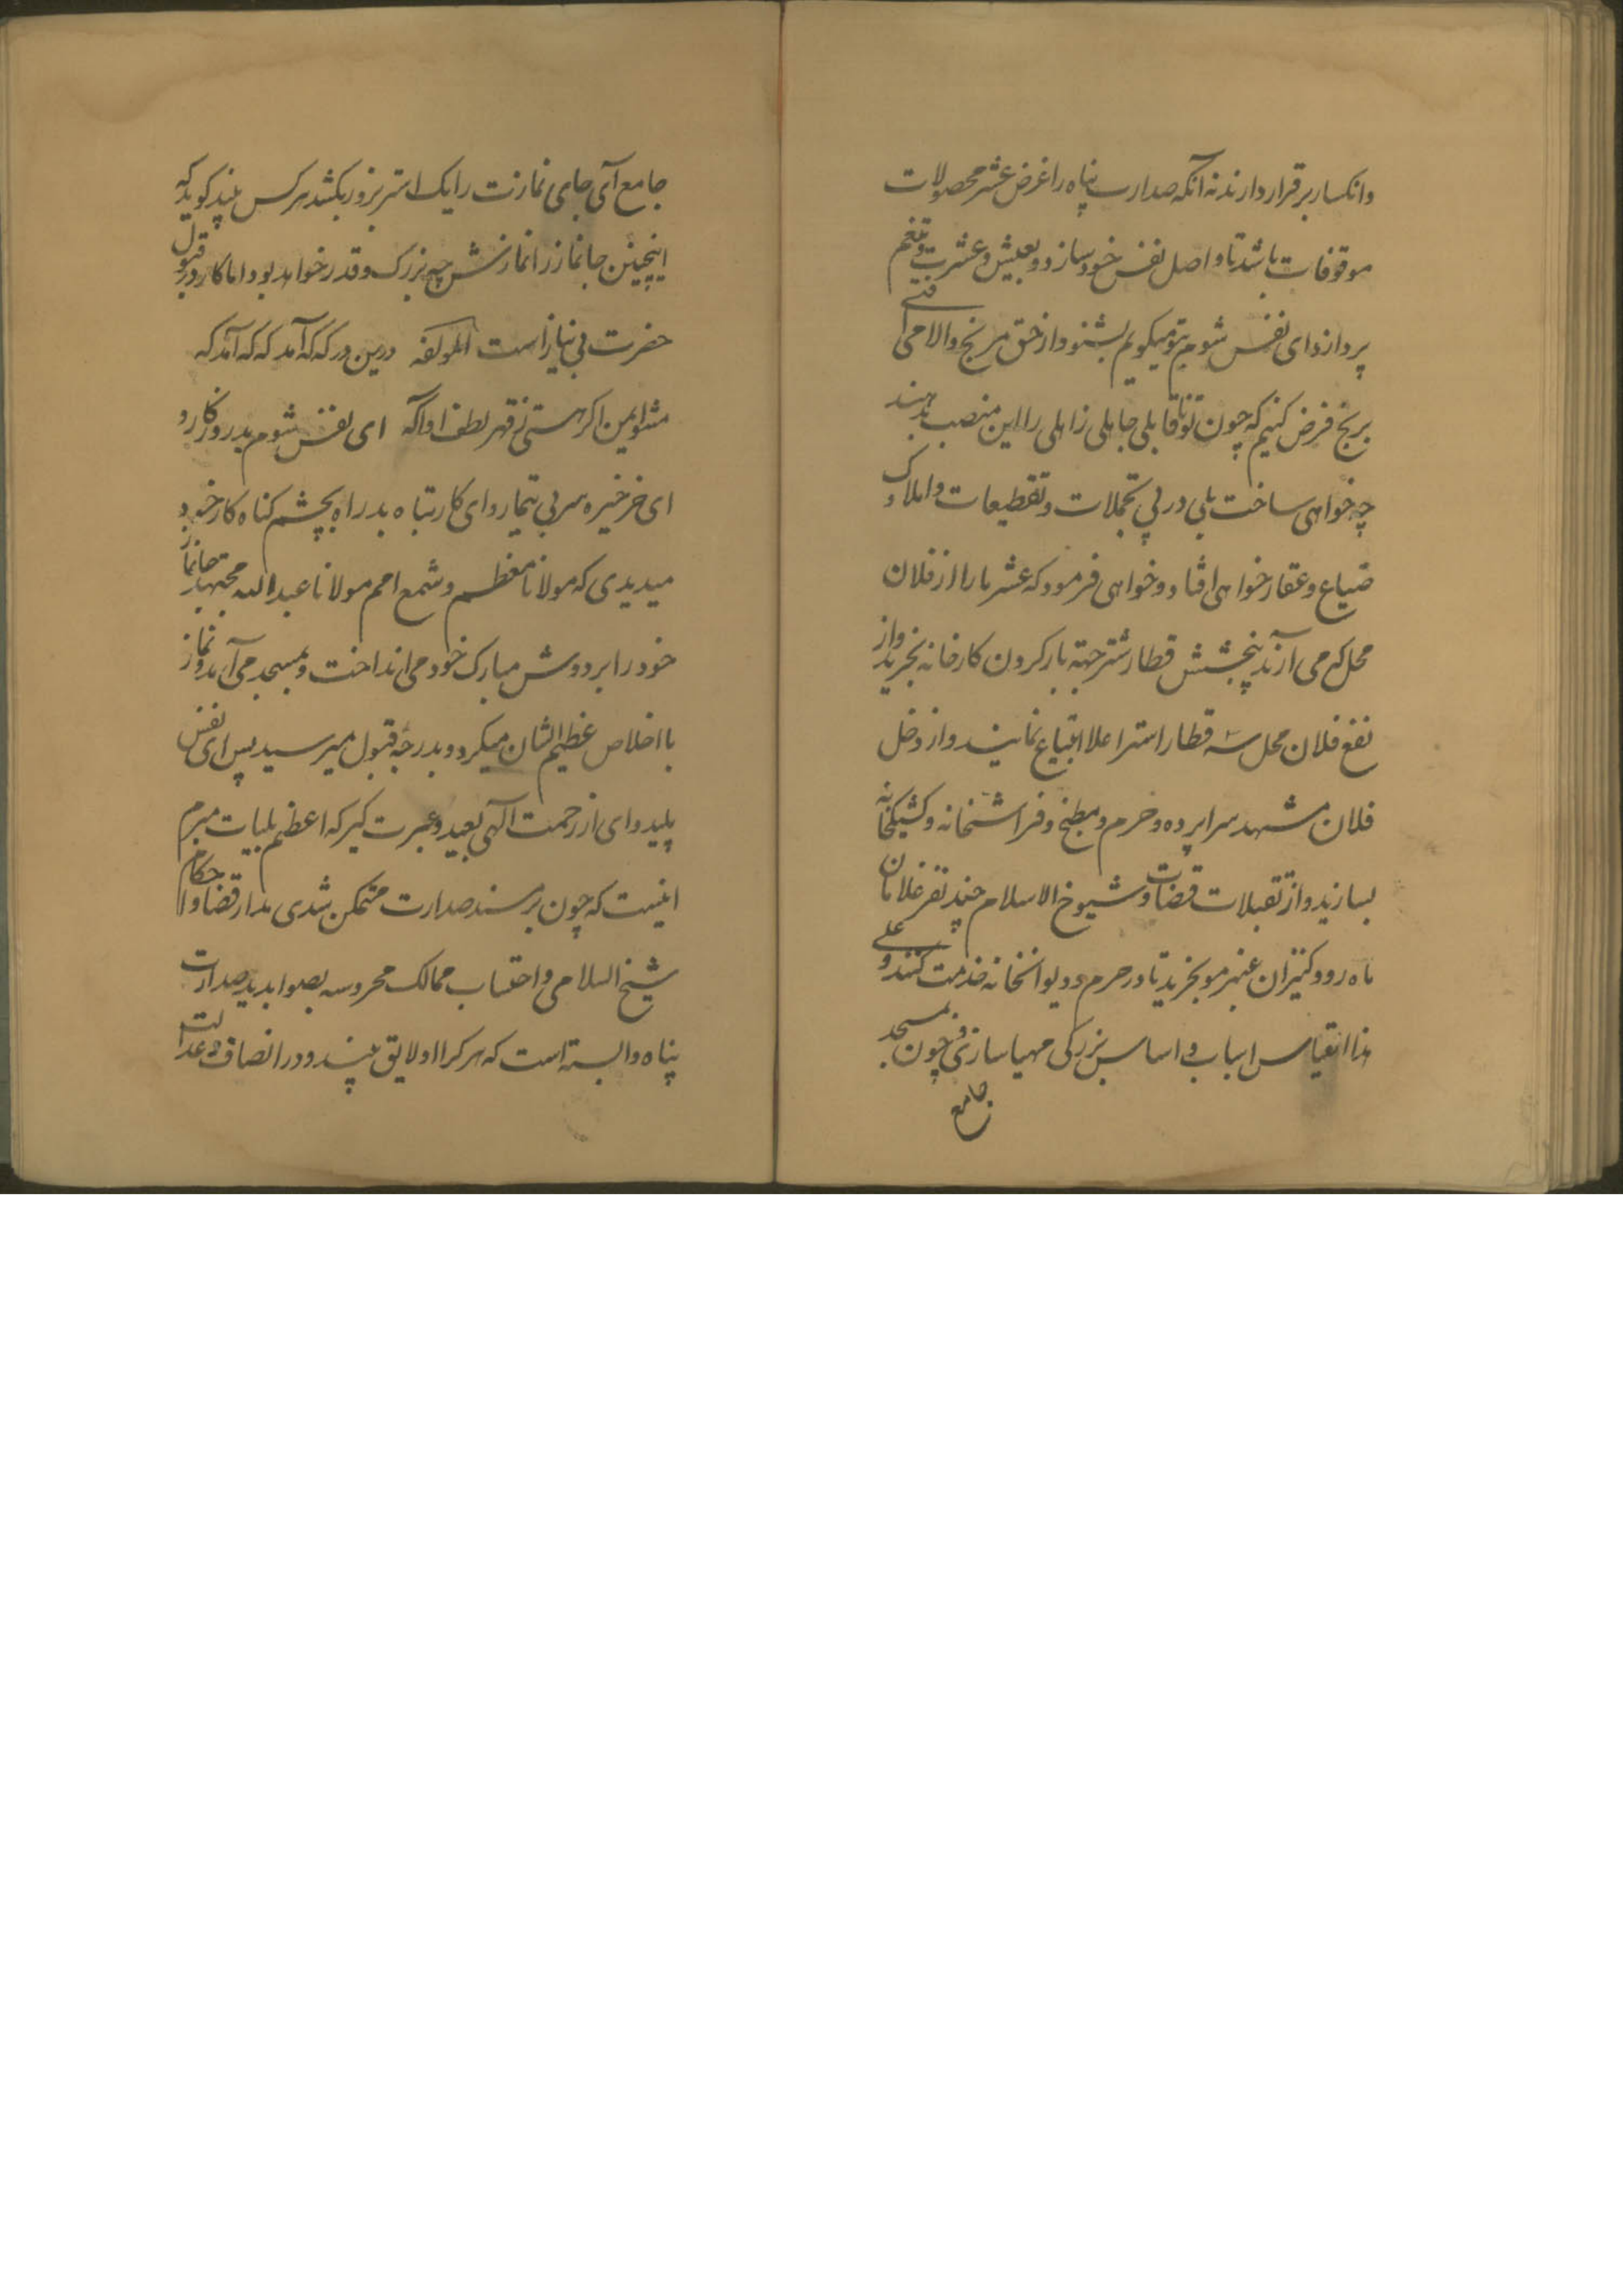 وانکسار برقرار دارند نه آنکه صدارت پناه را غرض عشر محصولات
موقوفات باشد تا واصل نفس خود سازد و بعیش و عشرت و تنعم
پردازد ای نفس شوم بتو میکویم بشنو و از حق مرنج والا می افتی
برنج فرض کنیم که چون تو ناقابلی جاهلی زاهلی را این منصب بدهند
چه خواهی ساخت بلی در پی تجملات و تقطیعات و املاک و
ضیاع و عقار خواهی افتاد و خواهی فرمود که عشر ما را از فلان
محل که می آرند پنجشش قطار شتر جهة بار کردن کارخانه بخرید و از
نفع فلان محل سه قطار استر اعلا ابتیاع نمایند و از دخل
فلان مشهد سراپرده و خرم و مطبخ و فراشخانه و کشیکخانه
بسازید و از تقبلات قضات و شیوخ الاسلام چند نفر غلامان
ماه رو و کنیزان عنبر مو بخرید تا در حرم و دیوانخانه خدمت کنند و علی
هذا القیاس اسباب و اساس بزرکی مهیا سازی و چون بمسجد
جامع
جامع آی جای نمازت را یک استر بزور بکشد هر کس بیند کوید که
اینچنین جانماز را نمازش چه بزرک و قدر خواهد بود اما کار در قبول
حضرت بی نیاز است لمولفه درین درکه که که آمد که که آمد که
مشو ایمن اکر هستی ز قهر لطف او آکه ای نفس شوم بدروزکار و
ای خر خیره سر بی تیمار و ای کار تباه بدراه بچشم کناه کار خود
میدیدی که مولانا معظم و شمع امم مولانا عبدالله مجتهد جانماز
خود را بر دوش مبارک خود می انداخت و بمسجد می آمد و نماز
با اخلاص عظیم الشان میکرد و بدرجه قبول میرسید پس ای نفس
پلید و ای از رحمت الهی بعید و عبرت کیر که اعظم بلیات مبرم
اینست که چون بر مسند صدارت متمکن شدی مدار قضا و احکام
شیخ السلامی و احتساب ممالک محروسه بصوابدید صدارت
پناه وابسته است که هر کرا او لایق بیند و در انصاف و عدالت